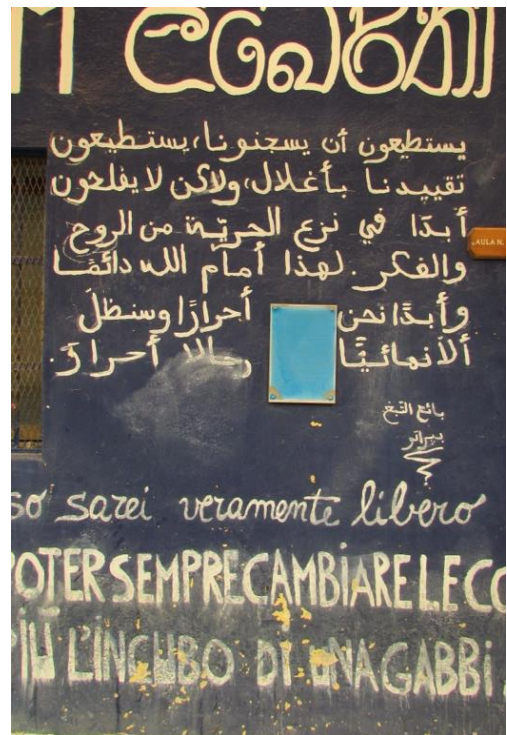 يستطيعون أن يسجنونا، يستطيعون
تقييدنا بأغلال، ولاكن لا يفلحون
أبدًا في نزع الحريّة من الروح
AULA N.
والفكر. لهذا أمام الله دائمًا
وأبدًا نحن أحرارًا وسنظلّ
ألانهائيًّا أحرارً.
بائع التبغ
so sarei veramente libero
POTER SEMPRE CAMBIARE LE CO
PIÙ L'INCUBO DI UNA GABBI